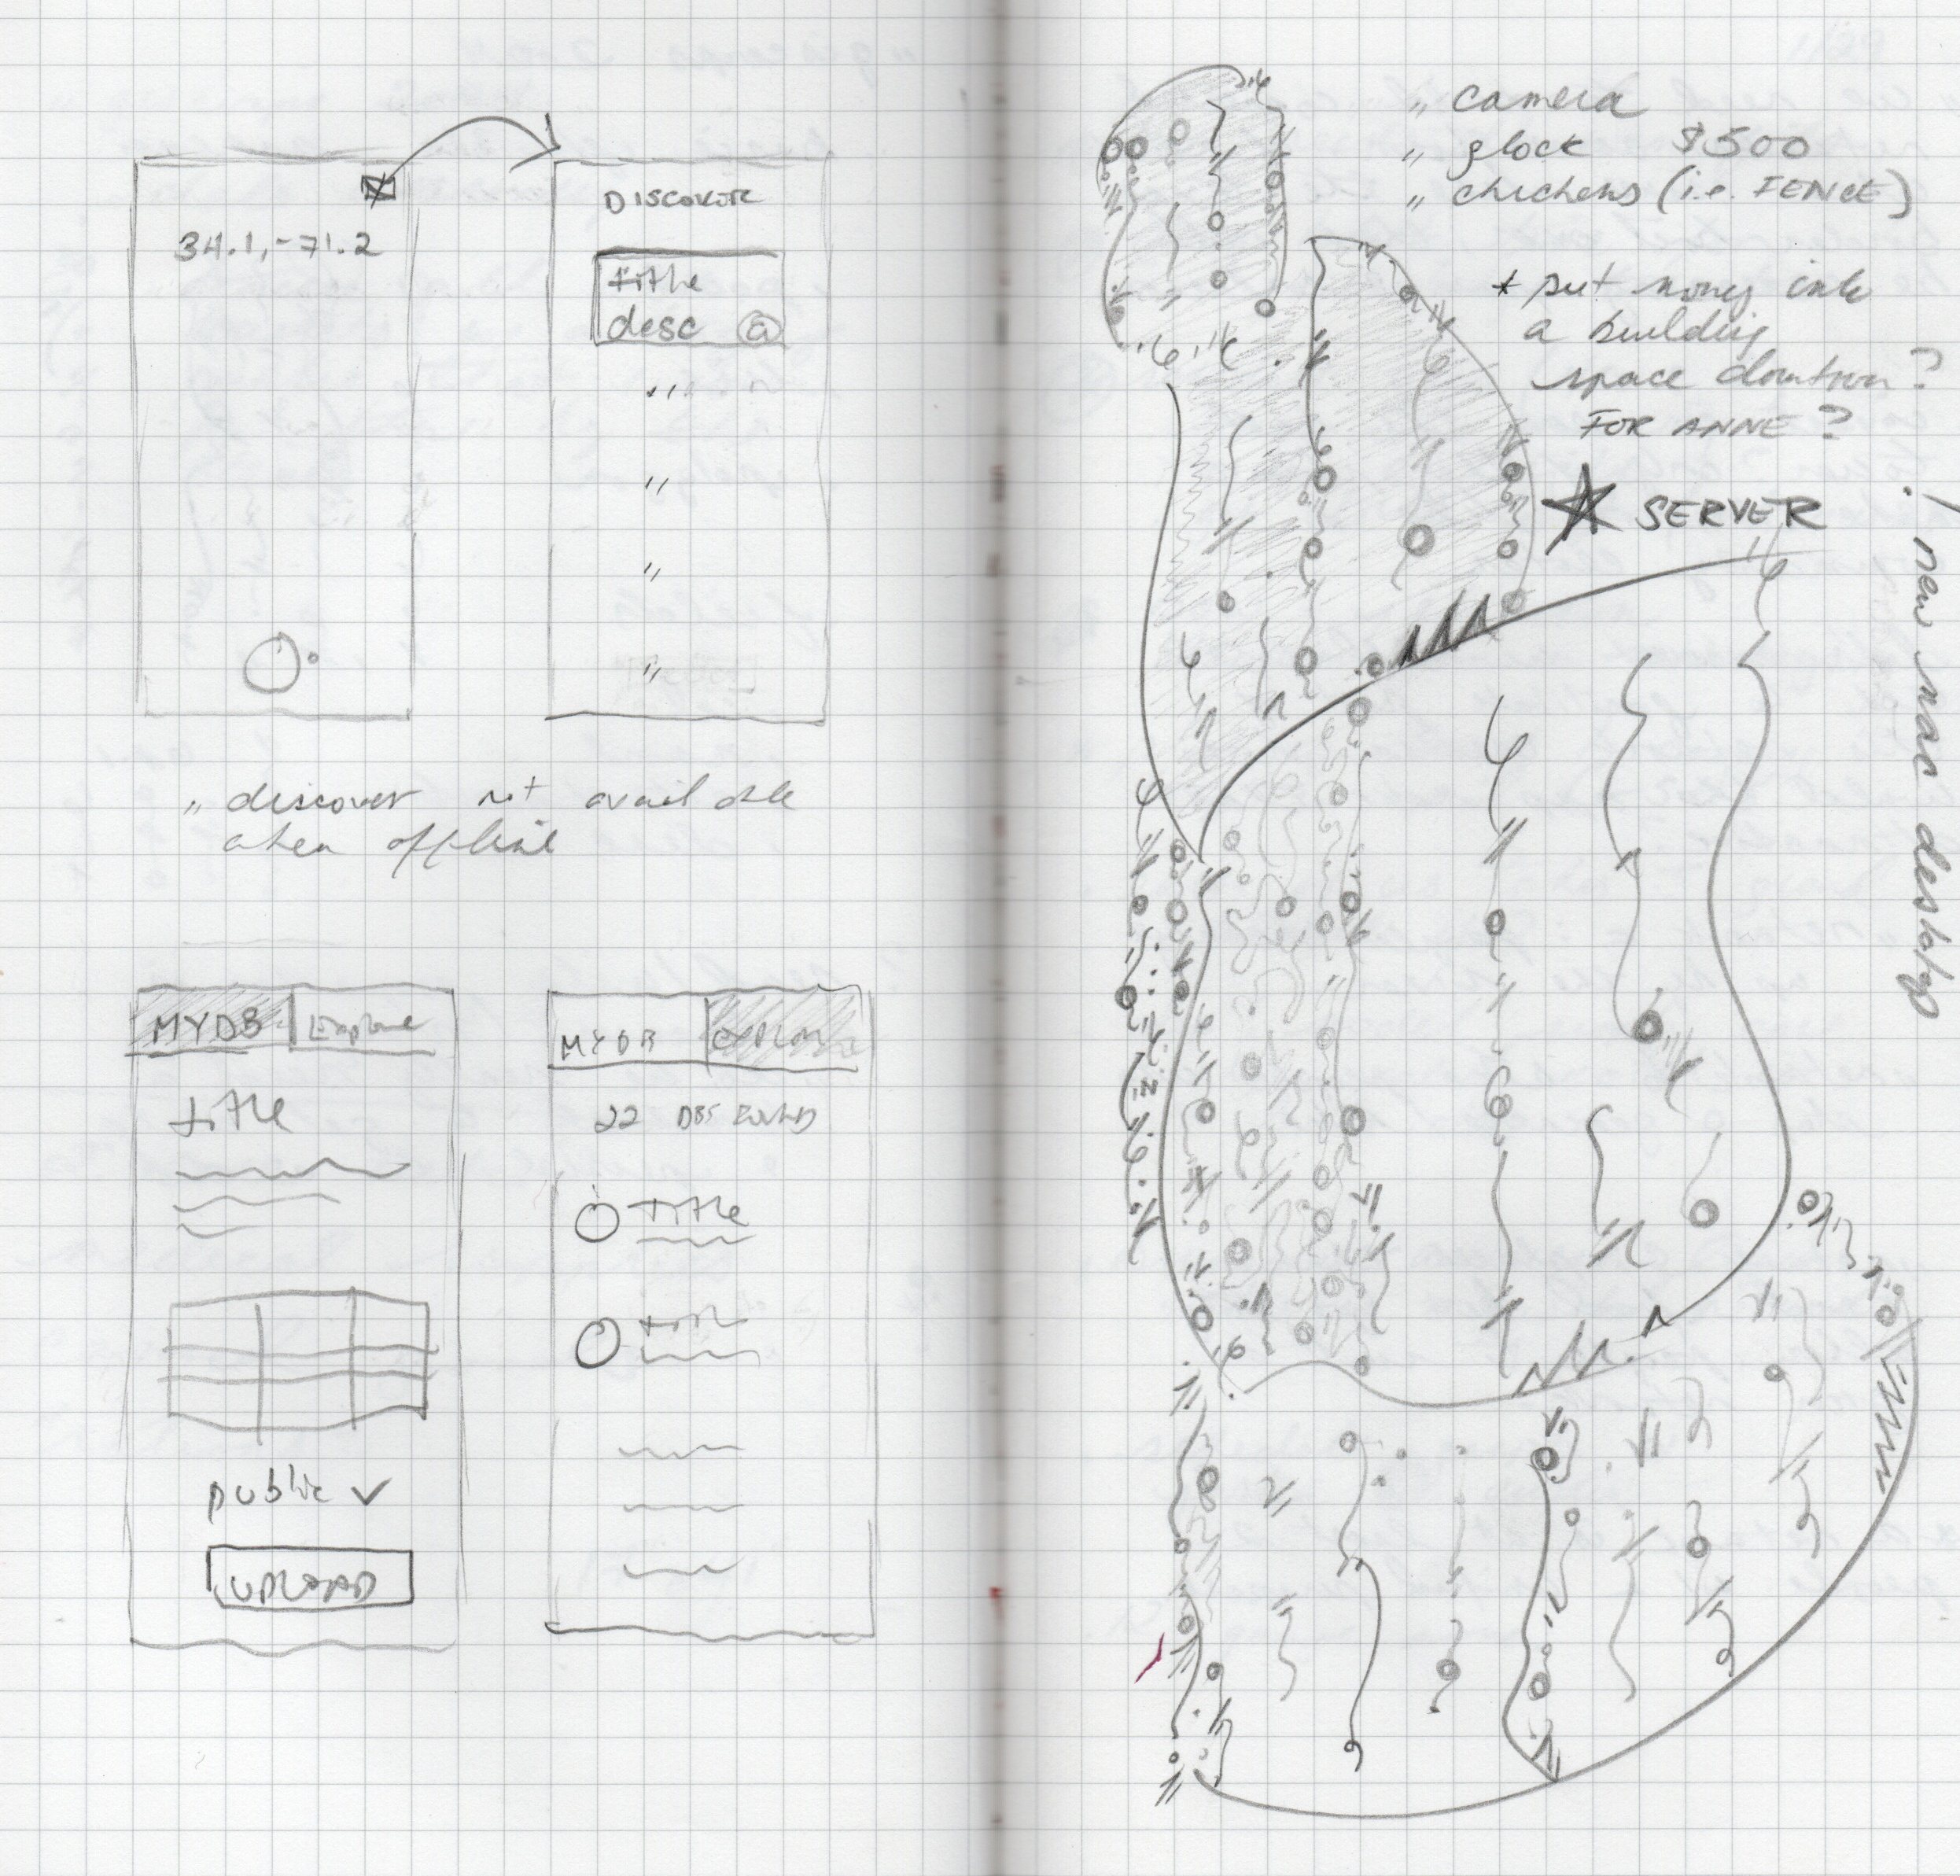 34.1,-71.2
DISCOVER
title
desc
"
"
"
"
" discover not available
when offline
MYDB Explore
title
public ✓
UPLOAD
MYDB EXPLORE
22 DBS FOUND
title
title
" camera
" glock $500
" chickens (i.e. FENCE)
* put money into
a building
space downtown?
FOR ANNE?
★ SERVER
! new mac desktop